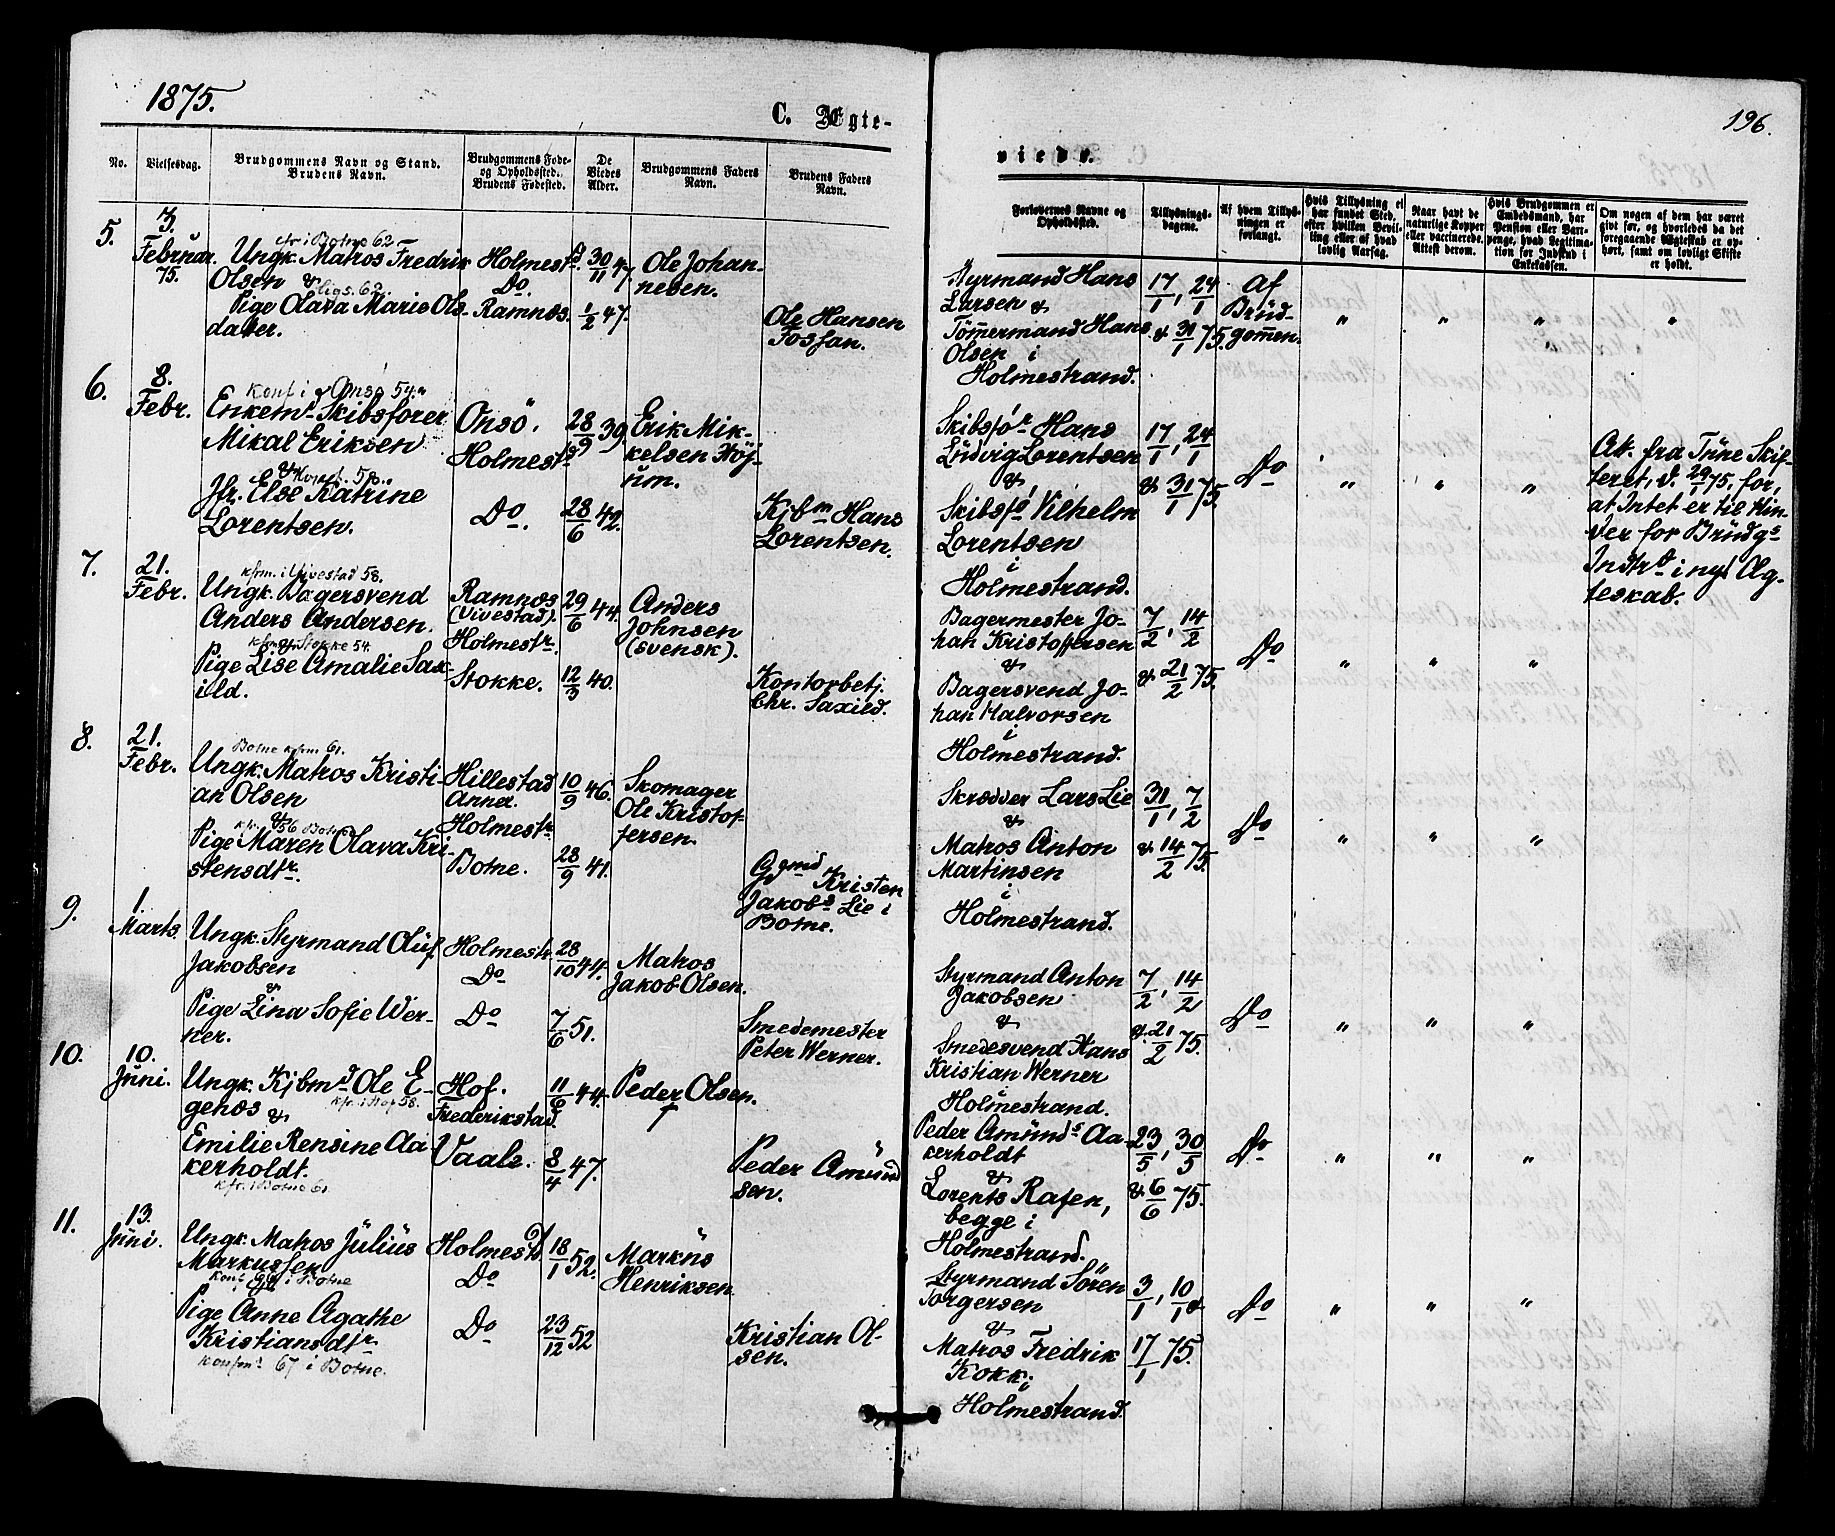 1875.
C. Ægte-
No.
Vielsesdag.
Brudgommens Navn og Stand.
Brudens Navn.
Brudgommens Føde-
og Opholdssted.
Brudens Fødested.
De
Viedes
Alder.
Brudgommens Faders
Navn.
Brudens Faders
Navn.
5.
3.
Februar
75.
cfr i Botne 62
Ungk. Matros Fredrik
Olsen &
ligs. 62.
Pige Olava Marie Ols-
datter.
Holmestd.
Do.
Ramnæs.
30/11 47
1/2 47.
Ole Johan-
nesen.
Ole Hansen
Fossan.
6.
8.
Febr.
Konf i Onsø 54.
Enkemd. Skibsfører
Mikal Eriksen
& Konf. 58.
Jfr. Else Katrine
Lorentsen.
Onsö.
Holmestd.
Do.
28/9 39.
28/6 42.
Erik Mik-
kelsen Höj-
um.
Kjbm Hans
Lorentsen.
7.
21.
Febr.
kfrm. i Vivestad 58.
Ungk. Bagersvend
Anders Andersen.
kfrm & Stokke 54.
Pige Lise Amalie Sax-
ild.
Ramnæs
(Vivestad).
Holmestr.
Stokke.
29/6 44.
12/3 40.
Anders
Johnsen
(svensk).
Kontorbetj.
Chr. Saxild.
8.
21.
Febr.
Botne kfrm 61.
Ungk. Matros Kristi-
an Olsen
&
kfr. 56 Botne
Pige Maren Olava Kri-
stensdtr.
Hillestad
Annex.
Holmestr.
Botne.
10/9 46.
28/9 41.
Skomager
Ole Kristof-
fersen.
Ggmd Kristen
Jakobs Lie i
Botne.
9.
1.
Marts.
Ungk. Styrmand Oluf
Jakobsen
&
Pige Lina Sofie Wer-
ner.
Holmestr.
Do
Do
28/10 44.
7/6 51.
Matros
Jakob Olsen.
Smedemester
Peter Werner.
10.
10.
Juni.
Ungk. Kjbmd Ole E-
genæs &
kfr. i Hof 58.
Emilie Rensine Aa-
kerholdt.
kfr. i Botne 61
Hof.
Frederikstad.
Vaale.
11/6 44.
8/4 47.
Peder Olsen.
†
Peder Amünd
sen.
11.
13.
Juni.
Ungk. Matros Jülius
Markussen
konf. i Botne
Pige Anne Agathe
Kristiansdtr.
konfm. 67 i Botne.
Holmestd.
Do
Do
18/1 52.
23/12 52
Markus
Henriksen.
Kristian Ol-
sen.
196.
viede.
Forlovernes Navne og
Opholdssted.
Tillysnings-
dagene.
Af hvem Tillys-
ningen er
forlangt.
Hvis Tillysning ei
har fundet Sted,
efter hvilken Bevil-
ling eller af hvad
lovlig Aarsag.
Naar havt de
naturlige Kopper
eller vaccinerede.
Attest derom.
Hvis Brudgommen er
Embedsmand, har
Pension eller Vart-
penge, hvad Legitima-
tion for Indskud i
Enkekassen.
Om nogen af dem har været
givt før, og hvorledes da det
foregaaende Ægteskab er op-
hørt, samt om lovligt Skifte
er holdt.
Styrmand Hans
Larsen &
Tömmermand Hans
Olsen i
Holmestrand.
17/1, 24/1
& 31/1 75.
Af
Brüd-
gommen.
" " " "
"
Skibsfør Hans
Lüdvig Lorentsen
&
Skibsfø Vilhelm
Lorentsen
i
Holmestrand.
17/1, 24/1
& 31/1 75.
Do
" " "
At. fra Tüne Skif-
teret, d. 29/1 75, for,
at Intet er til Hin-
der for Brüdgs
Indtr. i nyt Æg-
teskab.
Bagermester Jo-
han Kristoffersen
&
Bagersvend Jo-
han Halvorsen
i
Holmestrand.
7/2, 14/2
& 21/2 75.
Do
" " "
Skrædder Lars Lie
&
Matros Anton
Martinsen
i
Holmestrand.
31/1, 7/2
& 14/2 75.
Do
" " "
Styrmand Anton
Jakobsen
&
Smedesvend Hans
Kristian Werner
i
Holmestrand.
7/2, 14/2
&. 21/2 75.
Do
" " "
Peder Amünds Aa-
kerholdt
&
Lorents Rafen,
begge i
Holmestrand.
23/5, 30/5
& 6/6 75.
Do
" " "
Styrmand Sören
Torgersen
&
Matros Fredrik
Kokk
i
Holmestrand.
3/1, 10/1 &
17/1 75.
Do
" " "